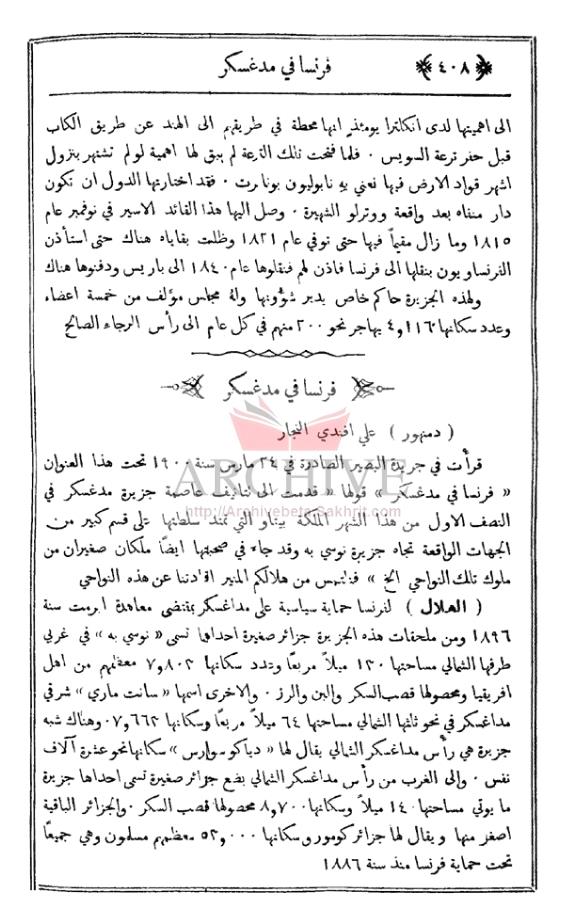 ﴿ ٤٠٨ ﴾ فرنسا في مدغسكر
الى اهميتها لدى انكلترا يومئذٍ انها محطة في طريقهم الى الهند عن طريق الكاب
قبل حفر ترعة السويس ٠ فلما فتحت تلك الترعة لم يبق لها اهمية لو لم تشتهر بنزول
اشهر قواد الارض فيها نعني بهِ نابوليون بونابرت ٠ فقد اختارتها الدول ان تكون
دار منفاه بعد واقعة ووترلو الشهيرة ٠ وصل اليها هذا القائد الاسير في نوفمبر عام
١٨١٥ وما زال مقيماً فيها حتى توفي عام ١٨٢١ وظلت بقاياه هناك حتى استأذن
الفرنساويون بنقلها الى فرنسا فاذن لهم فنقلوها عام ١٨٤٠ الى باريس ودفنوها هناك
ولهذه الجزيرة حاكم خاص يدبر شؤونها ولهُ مجلس مؤلف من خمسة اعضاء
وعدد سكانها ٤,١١٦ يهاجر نحو ٢٠٠ منهم في كل عام الى رأس الرجاء الصالح
فرنسا في مدغسكر
( دمنهور ) علي افندي النجار
قرأت في جريدة البصير الصادرة في ٢٤ مارس سنة ١٩٠٠ تحت هذا العنوان
« فرنسا في مدغسكر » قولها « قدمت الى تناتيف عاصمة جزيرة مدغسكر في
النصف الاول من هذا الشهر الملكة بيناو التي تمتد سلطتها على قسم كبير من
الجهات الواقعة تجاه جزيرة نوسي به وقد جاء في صحبتها ايضاً ملكان صغيران من
ملوك تلك النواحي الخ » فنلتمس من هلالكم المنير افادتنا عن هذه النواحي
( الهلال ) لفرنسا حماية سياسية على مداغسكر بمقتضى معاهدة ابرمت سنة
١٨٩٦ ومن ملحقات هذه الجزيرة جزائر صغيرة احداها تسمى « نوسي به » في غربي
طرفها الشمالي مساحتها ١٣٠ ميلاً مربعاً وعدد سكانها ٧,٨٠٣ معظمهم من اهل
افريقيا ومحصولها قصب السكر والبن والرز ٠ والاخرى اسمها « سانت ماري » شرقي
مداغسكر في نحو ثلثها الشمالي مساحتها ٦٤ ميلاً مربعاً وسكانها ٧,٦٦٣ ٠ وهناك شبه
جزيرة هي رأس مداغسكر الشمالي يقال لها « دياكو سوارس » سكانها نحو عشرة آلاف
نفس ٠ والى الغرب من رأس مداغسكر الشمالي بضع جزائر صغيرة تسمى احداها جزيرة
ما يوتي مساحتها ١٤٠ ميلاً وسكانها ٨,٧٠٠ محصولها قصب السكر ٠ والجزائر الباقية
اصغر منها ويقال لها جزائر كومور وسكانها ٥٣,٠٠٠ معظمهم مسلمون وهي جميعاً
تحت حماية فرنسا منذ سنة ١٨٨٦
ARCHIVE
http://Archivebeta.Sakhrit.com